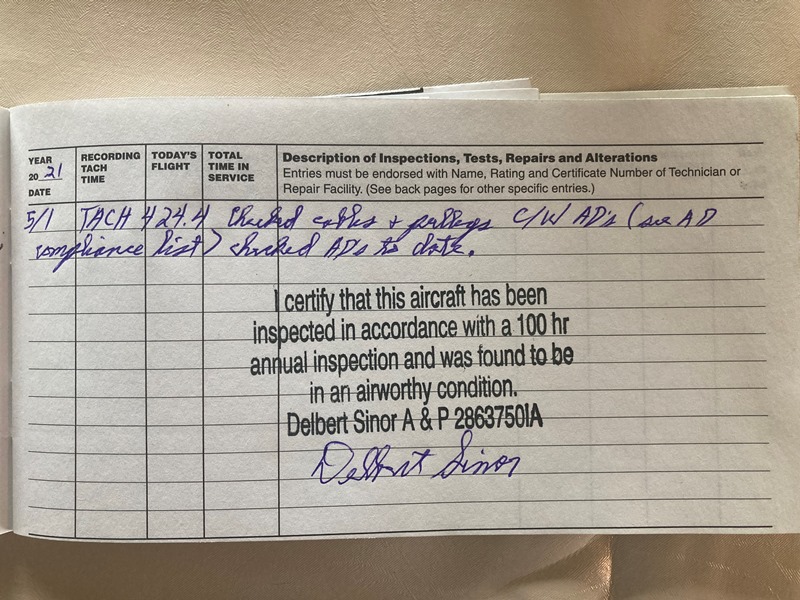 YEAR
20 21
DATE
RECORDING
TACH
TIME
TODAY'S
FLIGHT
TOTAL
TIME IN
SERVICE
Description of Inspections, Tests, Repairs and Alterations
Entries must be endorsed with Name, Rating and Certificate Number of Technician or
Repair Facility. (See back pages for other specific entries.)
5/1 TACH 424.4 Checked cables + pulleys C/W AD's (see AD
compliance list) checked ADs to date.
I certify that this aircraft has been
inspected in accordance with a 100 hr
annual inspection and was found to be
in an airworthy condition.
Delbert Sinor A & P 2863750IA
Delbert Sinor